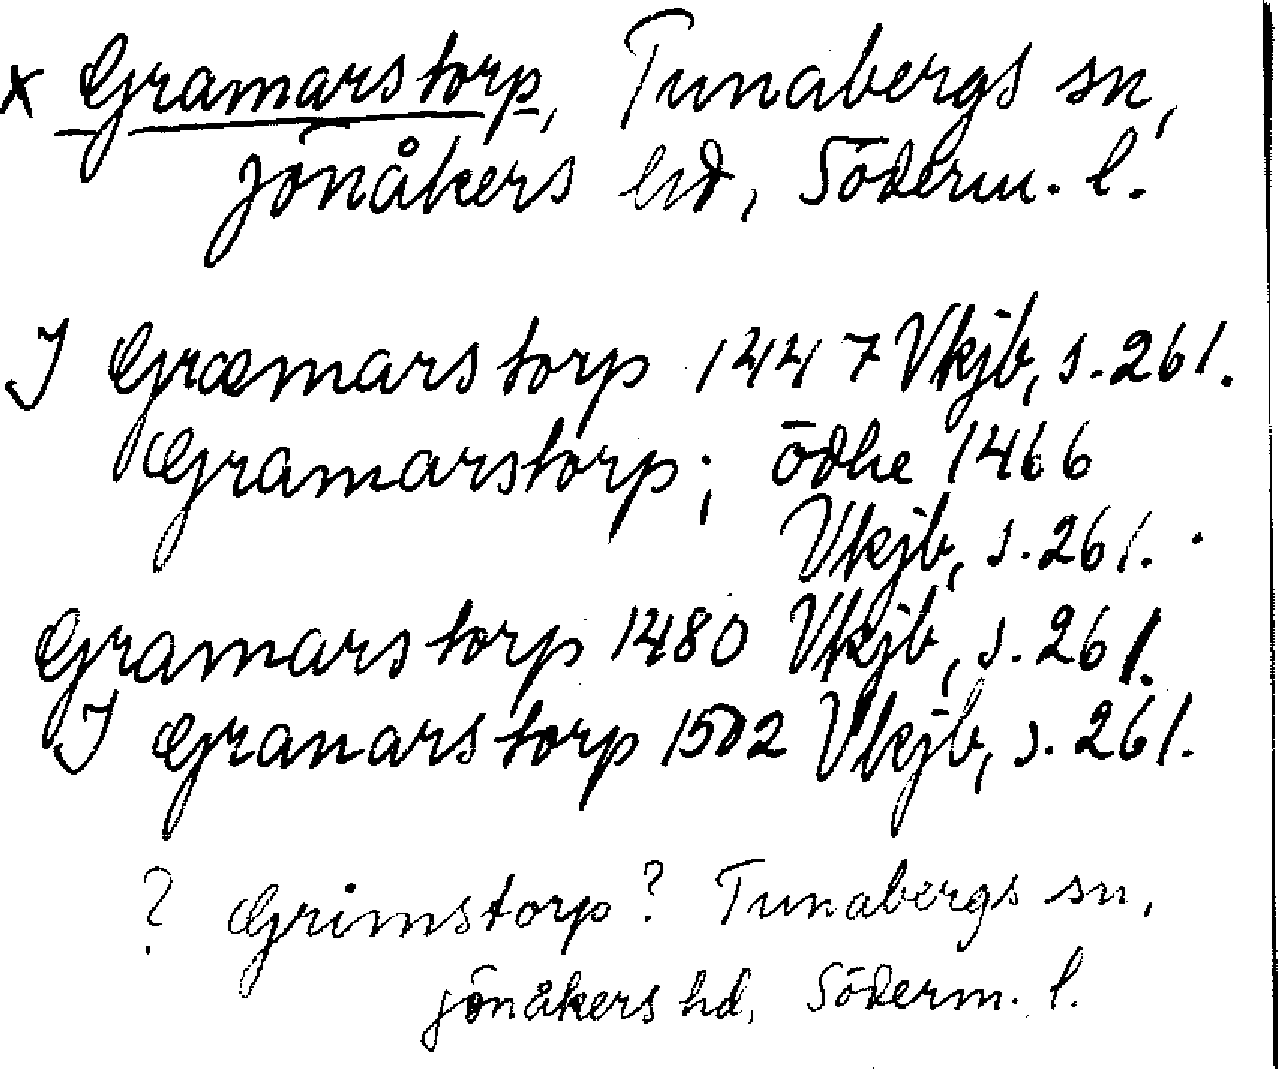 x Gramarstorp, Tunabergs sn,
Jönåkers hd, Söderm. l.
I Græmarstorp 1447 Vkjb, s. 261.
Gramarstorp; ödhe 1466
Vkjb, s. 261.
Gramarstorp 1480 Vkjb, s. 261.
I Granarstorp 1502 Vkjb, s. 261.
? Grimstorp? Tunabergs sn,
Jönåkers hd, Söderm. l.